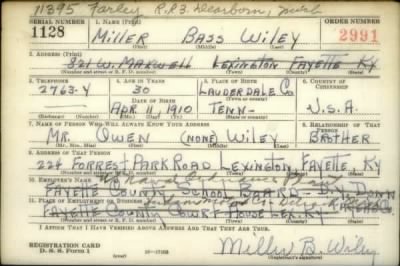 11395 Farley R.R.3. Dearborn, Mich
SERIAL NUMBER 1. NAME (Print) ORDER NUMBER
1128 MILLER BASS WILEY 2991
(First) (Middle) (Last)
2. ADDRESS (Print)
821 W. MAXWELL LEXINGTON FAYETTE KY
(Number and street or R. F. D. number) (Town) (County) (State)
3. TELEPHONE 4. AGE IN YEARS 5. PLACE OF BIRTH 6. COUNTRY OF CITIZENSHIP
2763-Y 30 LAUDERDALE CO.
DATE OF BIRTH (Town or county)
APR 11, 1910 TENN- U.S.A.
(Exchange) (Number) (Mo.) (Day) (Yr.) (State or country)
7. NAME OF PERSON WHO WILL ALWAYS KNOW YOUR ADDRESS 8. RELATIONSHIP OF THAT PERSON
MR. OWEN (NONE) WILEY BROTHER
(Mr., Mrs., Miss) (First) (Middle) (Last)
9. ADDRESS OF THAT PERSON
224 FORREST PARK ROAD LEXINGTON, FAYETTE, KY
(Number and street or R. F. D. number) (Town) (County) (State)
10. EMPLOYER'S NAME
FAYETTE COUNTY SCHOOL BOARD
11. PLACE OF EMPLOYMENT OR BUSINESS
FAYETTE COUNTY COURT HOUSE LEX. KY
(Number and street or R. F. D. number) (Town) (County) (State)
I AFFIRM THAT I HAVE VERIFIED ABOVE ANSWERS AND THAT THEY ARE TRUE.
REGISTRATION CARD
D. S. S. Form 1
Miller B. Wiley
(Registrant's signature)